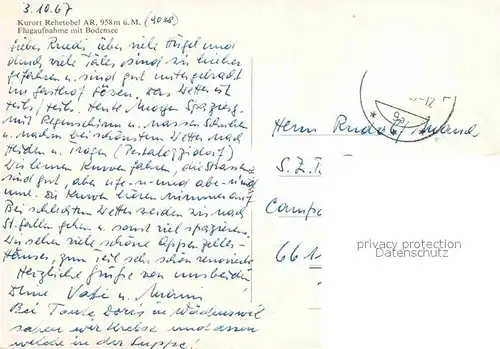 3.10.67
Kurort Rehetobel AR, 958 m ü. M. (9038)
Flugaufnahme mit Bodensee
Lieber Ruedi, über viele Hügel und
durch viele Täler sind wir hieher
gefahren u. sind gut untergebracht
im Gasthof Lösen, das Wetter ist
teils/teils. Heute Morgen Spazierg.
mit Regenschirm u. nassen Schuhen
u. nachm. bei schönstem Wetter nach
Heiden u. Trogen (Pestalozzidorf)
Wir lernen Kurven fahren, die Strassen
sind gut, aber
und. die Kurven hören nimmer auf
Bei schlechtem Wetter werden wir nach
St. Gallen gehen u. sonst viel spazieren.
Wir sehen viele schöne Appenzeller-
Häuser, zum teil sehr schön renovierte
Herzliche Grüsse von uns beiden
Vati u. Mami
Bei Tante Doris in Wädenswil
sahen wir Krebse und assen
welche in der Suppe!
Herrn Rudolf
S.Z.T.
Campo
661
privacy protection
Datenschutz